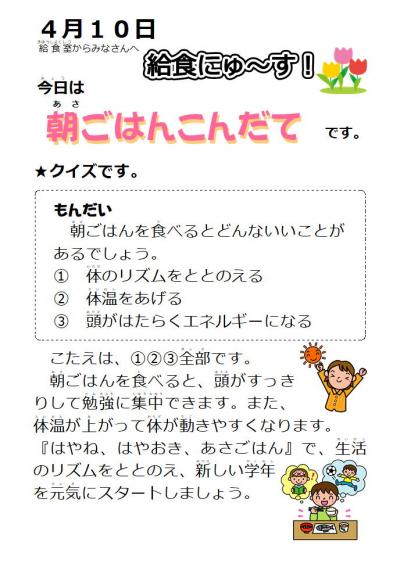 ４月１０日
給食室からみなさんへ
給食にゅ～す！
今日は
朝ごはんこんだて です。
★クイズです。
もんだい
朝ごはんを食べるとどんないいことが
あるでしょう。
① 体のリズムをととのえる
② 体温をあげる
③ 頭がはたらくエネルギーになる
こたえは、①②③全部です。
朝ごはんを食べると、頭がすっき
りして勉強に集中できます。また、
体温が上がって体が動きやすくなります。
『はやね、はやおき、あさごはん』で、生活
のリズムをととのえ、新しい学年
を元気にスタートしましょう。